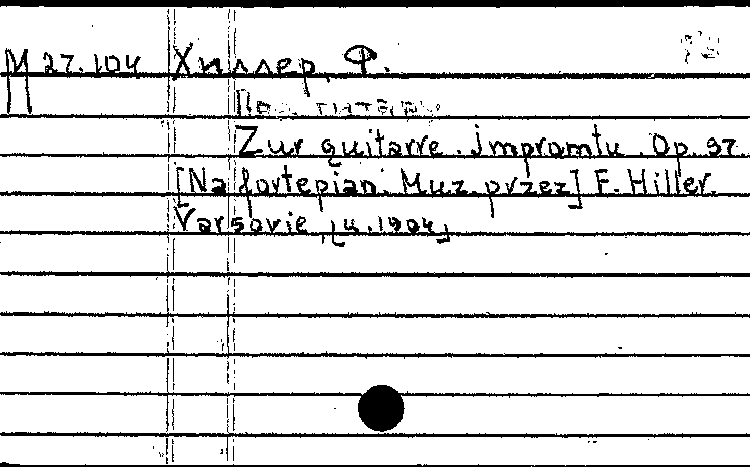 М 27.104 Хиллер, Ф.
Под гитару
Zur guitarre. Impromtu. Op. 97.
[Na fortepian. Muz. przez] F. Hiller.
Varsovie, [ц. 1904]